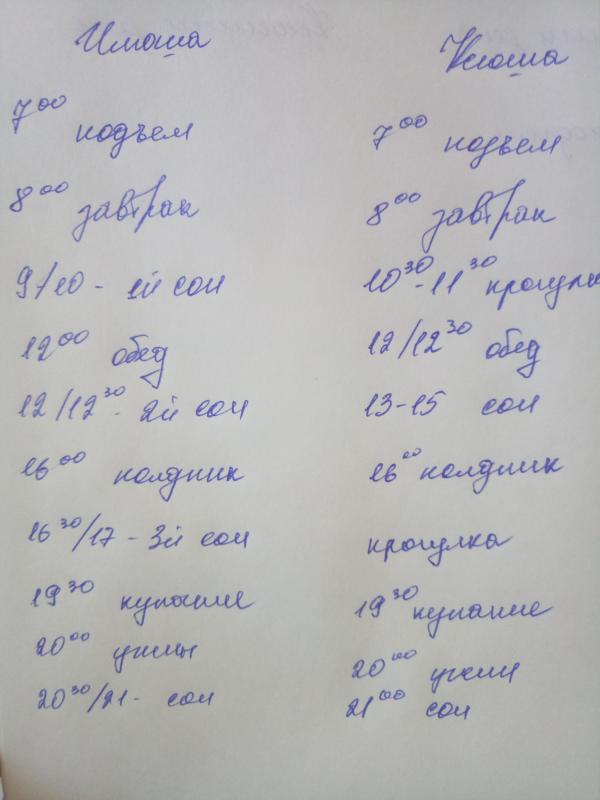 Илюша
7⁰⁰ подъем
8⁰⁰ завтрак
9/10 - 1й сон
12⁰⁰ обед
12/12³⁰ - 2й сон
16⁰⁰ полдник
16³⁰/17 - 3й сон
19³⁰ купание
20⁰⁰ ужин
20³⁰/21 - сон
Ксюша
7⁰⁰ подъем
8⁰⁰ завтрак
10³⁰-11³⁰ прогулка
12/12³⁰ обед
13-15 сон
16⁰⁰ полдник
прогулка
19³⁰ купание
20⁰⁰ ужин
21⁰⁰ сон